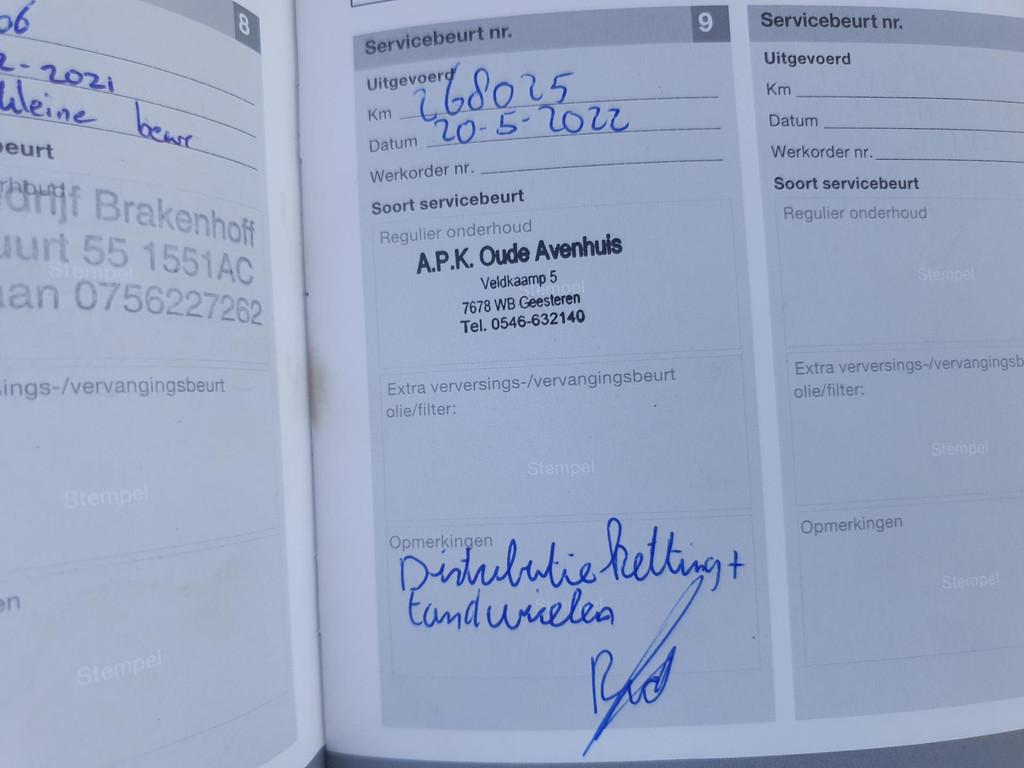 8
06
2-2021
kleine beurt
beurt
drijf Brakenhoff
uurt 55 1551AC
Stempel
aan 0756227262
sings-/vervangingsbeurt
Stempel
en
Stempel
Servicebeurt nr. 9
Uitgevoerd
Km 268025
Datum 20-5-2022
Werkorder nr.
Soort servicebeurt
Regulier onderhoud
A.P.K. Oude Avenhuis
Veldkaamp 5
Stempel
7678 WB Geesteren
Tel. 0546-632140
Extra verversings-/vervangingsbeurt
olie/filter:
Stempel
Opmerkingen
Distributie ketting +
tandwielen
Servicebeurt nr.
Uitgevoerd
Km
Datum
Werkorder nr.
Soort servicebeurt
Regulier onderhoud
Stempel
Extra verversings-/vervangingsb
olie/filter:
Stempel
Opmerkingen
Stempel